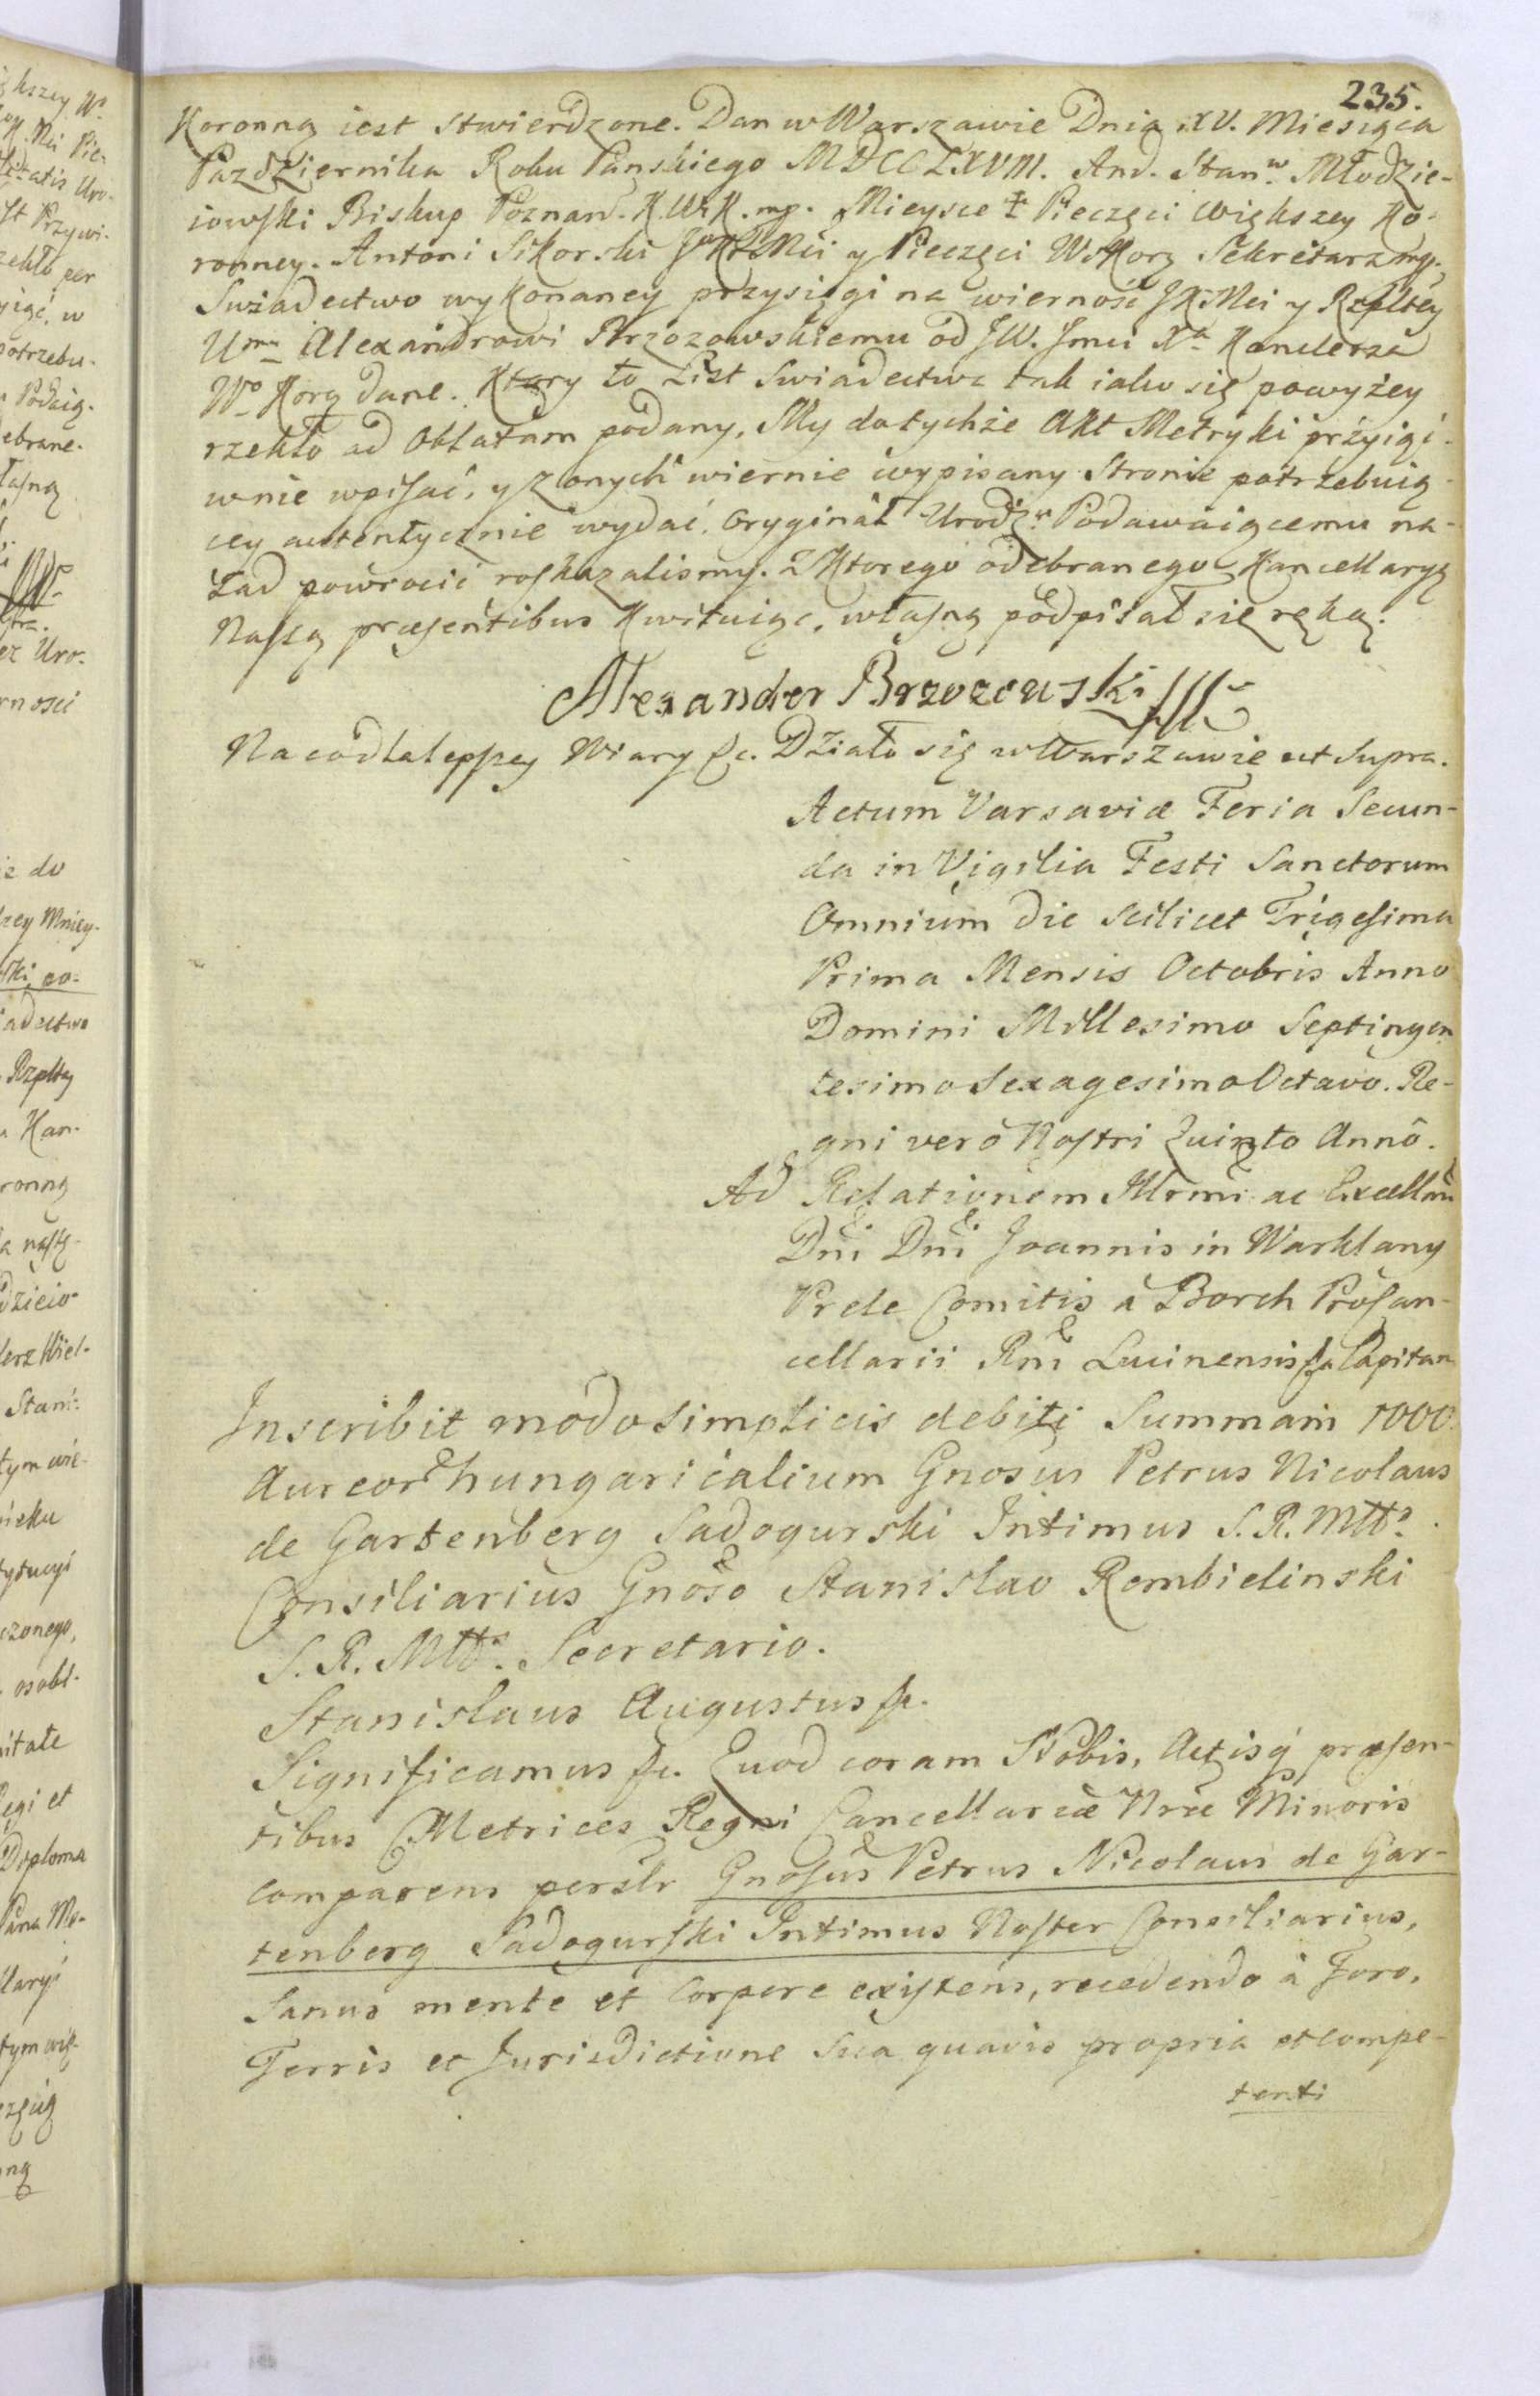 235.
Koronną iest stwierdzone. Dan w Warszawie Dnia XV. Miesiąca
Pazdziernika Roku Panskiego MDCCLXVIII. And. Stan.w Młodzie-
iowski Biskup Poznan. K.W.K. mp. Mieysce ‡ Pieczęci Większey Ko-
ronney. Antoni Sikorski JKMci y Pieczęci W Kory Sekretarz mp.
Swiadectwo wykonaney przysięgi na wierność JKMci y Rzpltey
Umu Alexandrowi Brzozowskiemu od JW. Jmci Xa Kanclerza
Wo Korg dane. Ktory to List Swiadectwa tak iako się powyżey
rzekło ad Oblatam podany, My dotychże Akt Metryki przyiąć
w nie wpisać, y z onych wiernie wypisany Stronie potrzebuią-
cey autentycznie wydać, Oryginał Urodz.u Podawaiącemu na-
zad powrocić roskazalismy. Z Ktorego odebranego Kancellaryą
Naszą præsentibus Kwituiąc, własną podpisał się ręką.
Alexander Brzozowski
Na co dla lepszey Wiary &c. Działo się w Warszawie ut Supra.
Actum Varsaviæ Feria Secun-
da in Vigilia Festi Sanctorum
Omnium die Scilicet Trigesima
Prima Mensis Octobris Anno
Domini Millesimo Septingen
tesimo Sexagesimo Octavo. Re-
gni vero Nostri Quinto Annô.
Ad Relationem Illrmi ac Excellmi
Dni Dni Joannis in Warklany
Prele Comitis à Borch Procan-
cellarii Rni Lucinensis &c Capitan
Inscribit modo simplicis debiti Summam 1000
Aureor hungaricalium Gnosus Petrus Nicolaus
de Gartenberg Sadogurski Intimus S. R. Mtts.
Consiliarius Gnoso Stanislao Rembielinski
S. R. Mtts. Secretario.
Stanislaus Augustus &c.
Significamus &c. Quod coram Nobis, Actisq præsen-
tibus Metrices Regni Cancellariæ Nræ Minoris
comparens perslr Gnosus Petrus Nicolaus de Gar-
tenberg Sadogurski Intimus Noster Consiliarius,
Sanus mente et Corpore existens, recedendo à Foro,
Terris et Jurisdictione Sua quavis propria et compe-
tenti